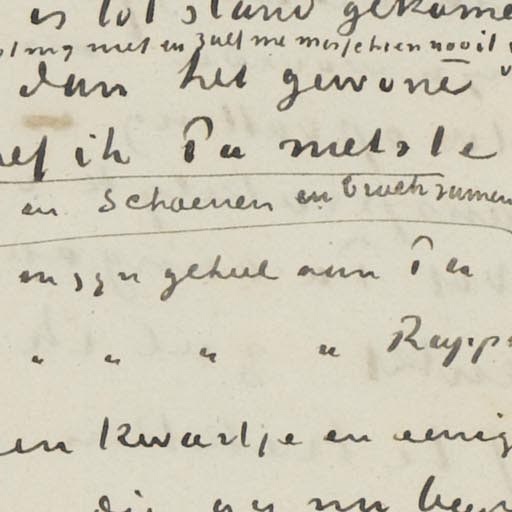 is tot stand gekome
my niet en zult me misschien nooit
dan het gewone
ik Pa metste
en Schoenen en broek samen
in zyn geheel aan Pa
" " " " Rapp
en kwartje en eenig
die nu